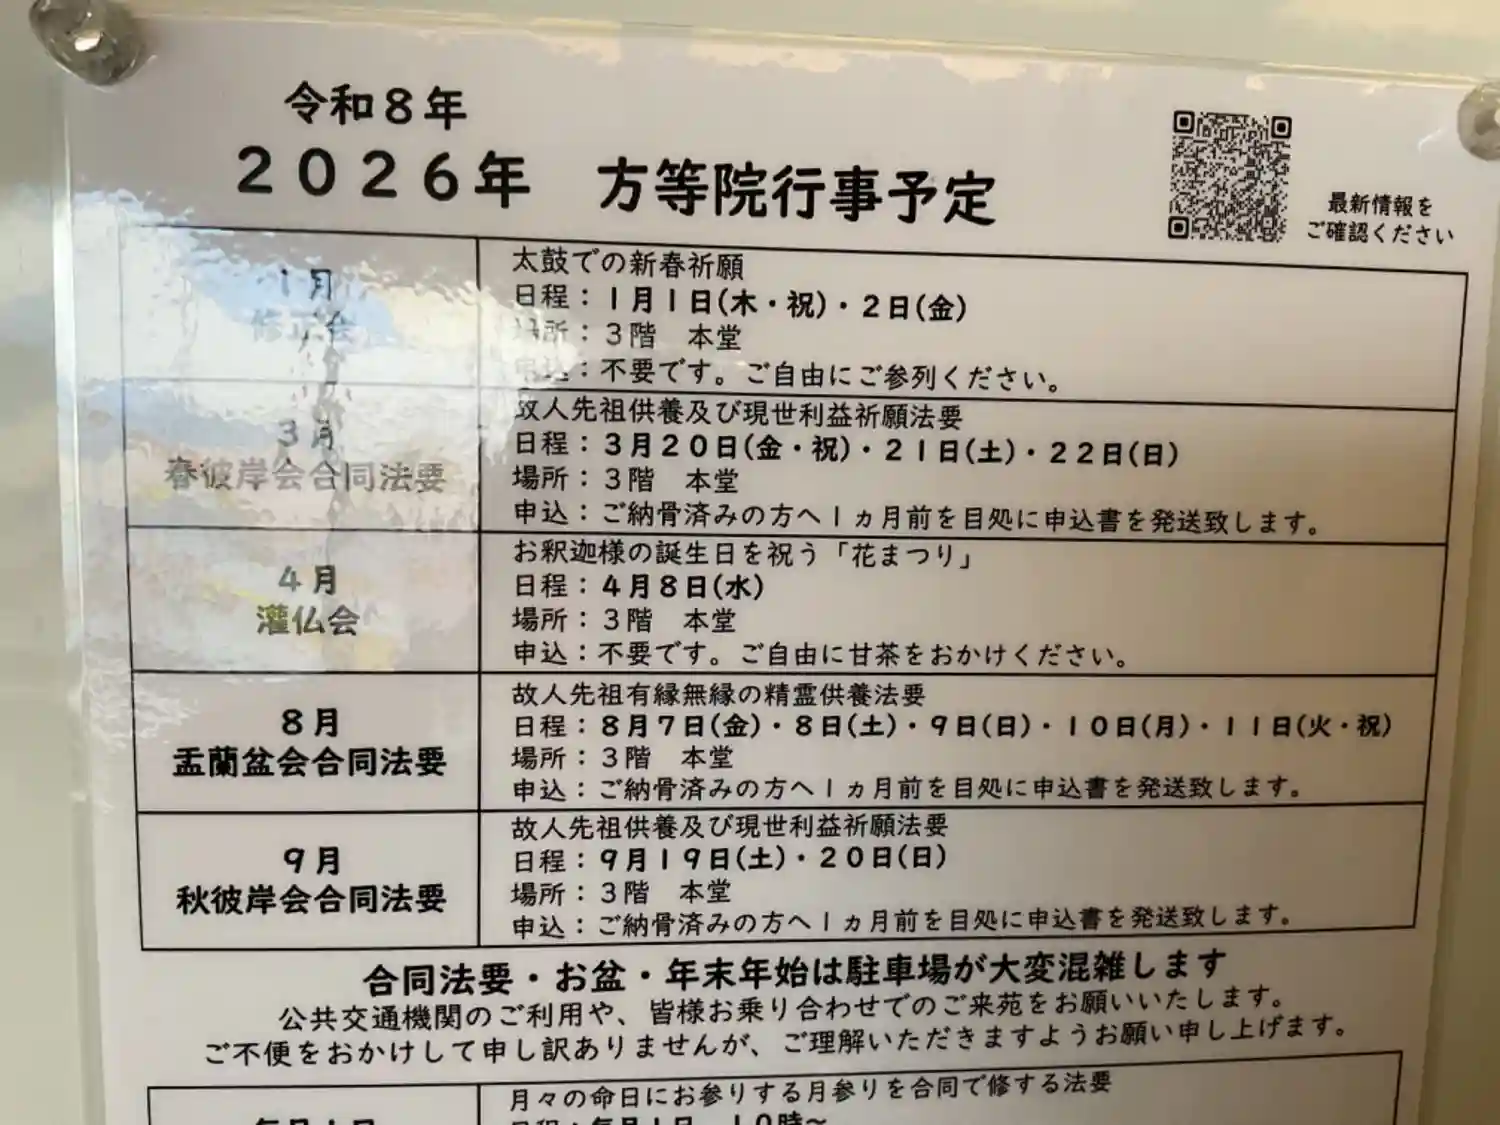 令和8年
2026年　方等院行事予定
最新情報を
ご確認ください
1月
修正会
太鼓での新春祈願
日程：1月1日(木・祝)・2日(金)
場所：3階　本堂
申込：不要です。ご自由にご参列ください。
3月
春彼岸会合同法要
故人先祖供養及び現世利益祈願法要
日程：3月20日(金・祝)・21日(土)・22日(日)
場所：3階　本堂
申込：ご納骨済みの方へ1ヵ月前を目処に申込書を発送致します。
4月
灌仏会
お釈迦様の誕生日を祝う「花まつり」
日程：4月8日(水)
場所：3階　本堂
申込：不要です。ご自由に甘茶をおかけください。
8月
盂蘭盆会合同法要
故人先祖有縁無縁の精霊供養法要
日程：8月7日(金)・8日(土)・9日(日)・10日(月)・11日(火・祝)
場所：3階　本堂
申込：ご納骨済みの方へ1ヵ月前を目処に申込書を発送致します。
9月
秋彼岸会合同法要
故人先祖供養及び現世利益祈願法要
日程：9月19日(土)・20日(日)
場所：3階　本堂
申込：ご納骨済みの方へ1ヵ月前を目処に申込書を発送致します。
合同法要・お盆・年末年始は駐車場が大変混雑します
公共交通機関のご利用や、皆様お乗り合わせでのご来苑をお願いいたします。
ご不便をおかけして申し訳ありませんが、ご理解いただきますようお願い申し上げます。
毎月1日
月々の命日にお参りする月参りを合同で修する法要
日程：毎月1日　10時～